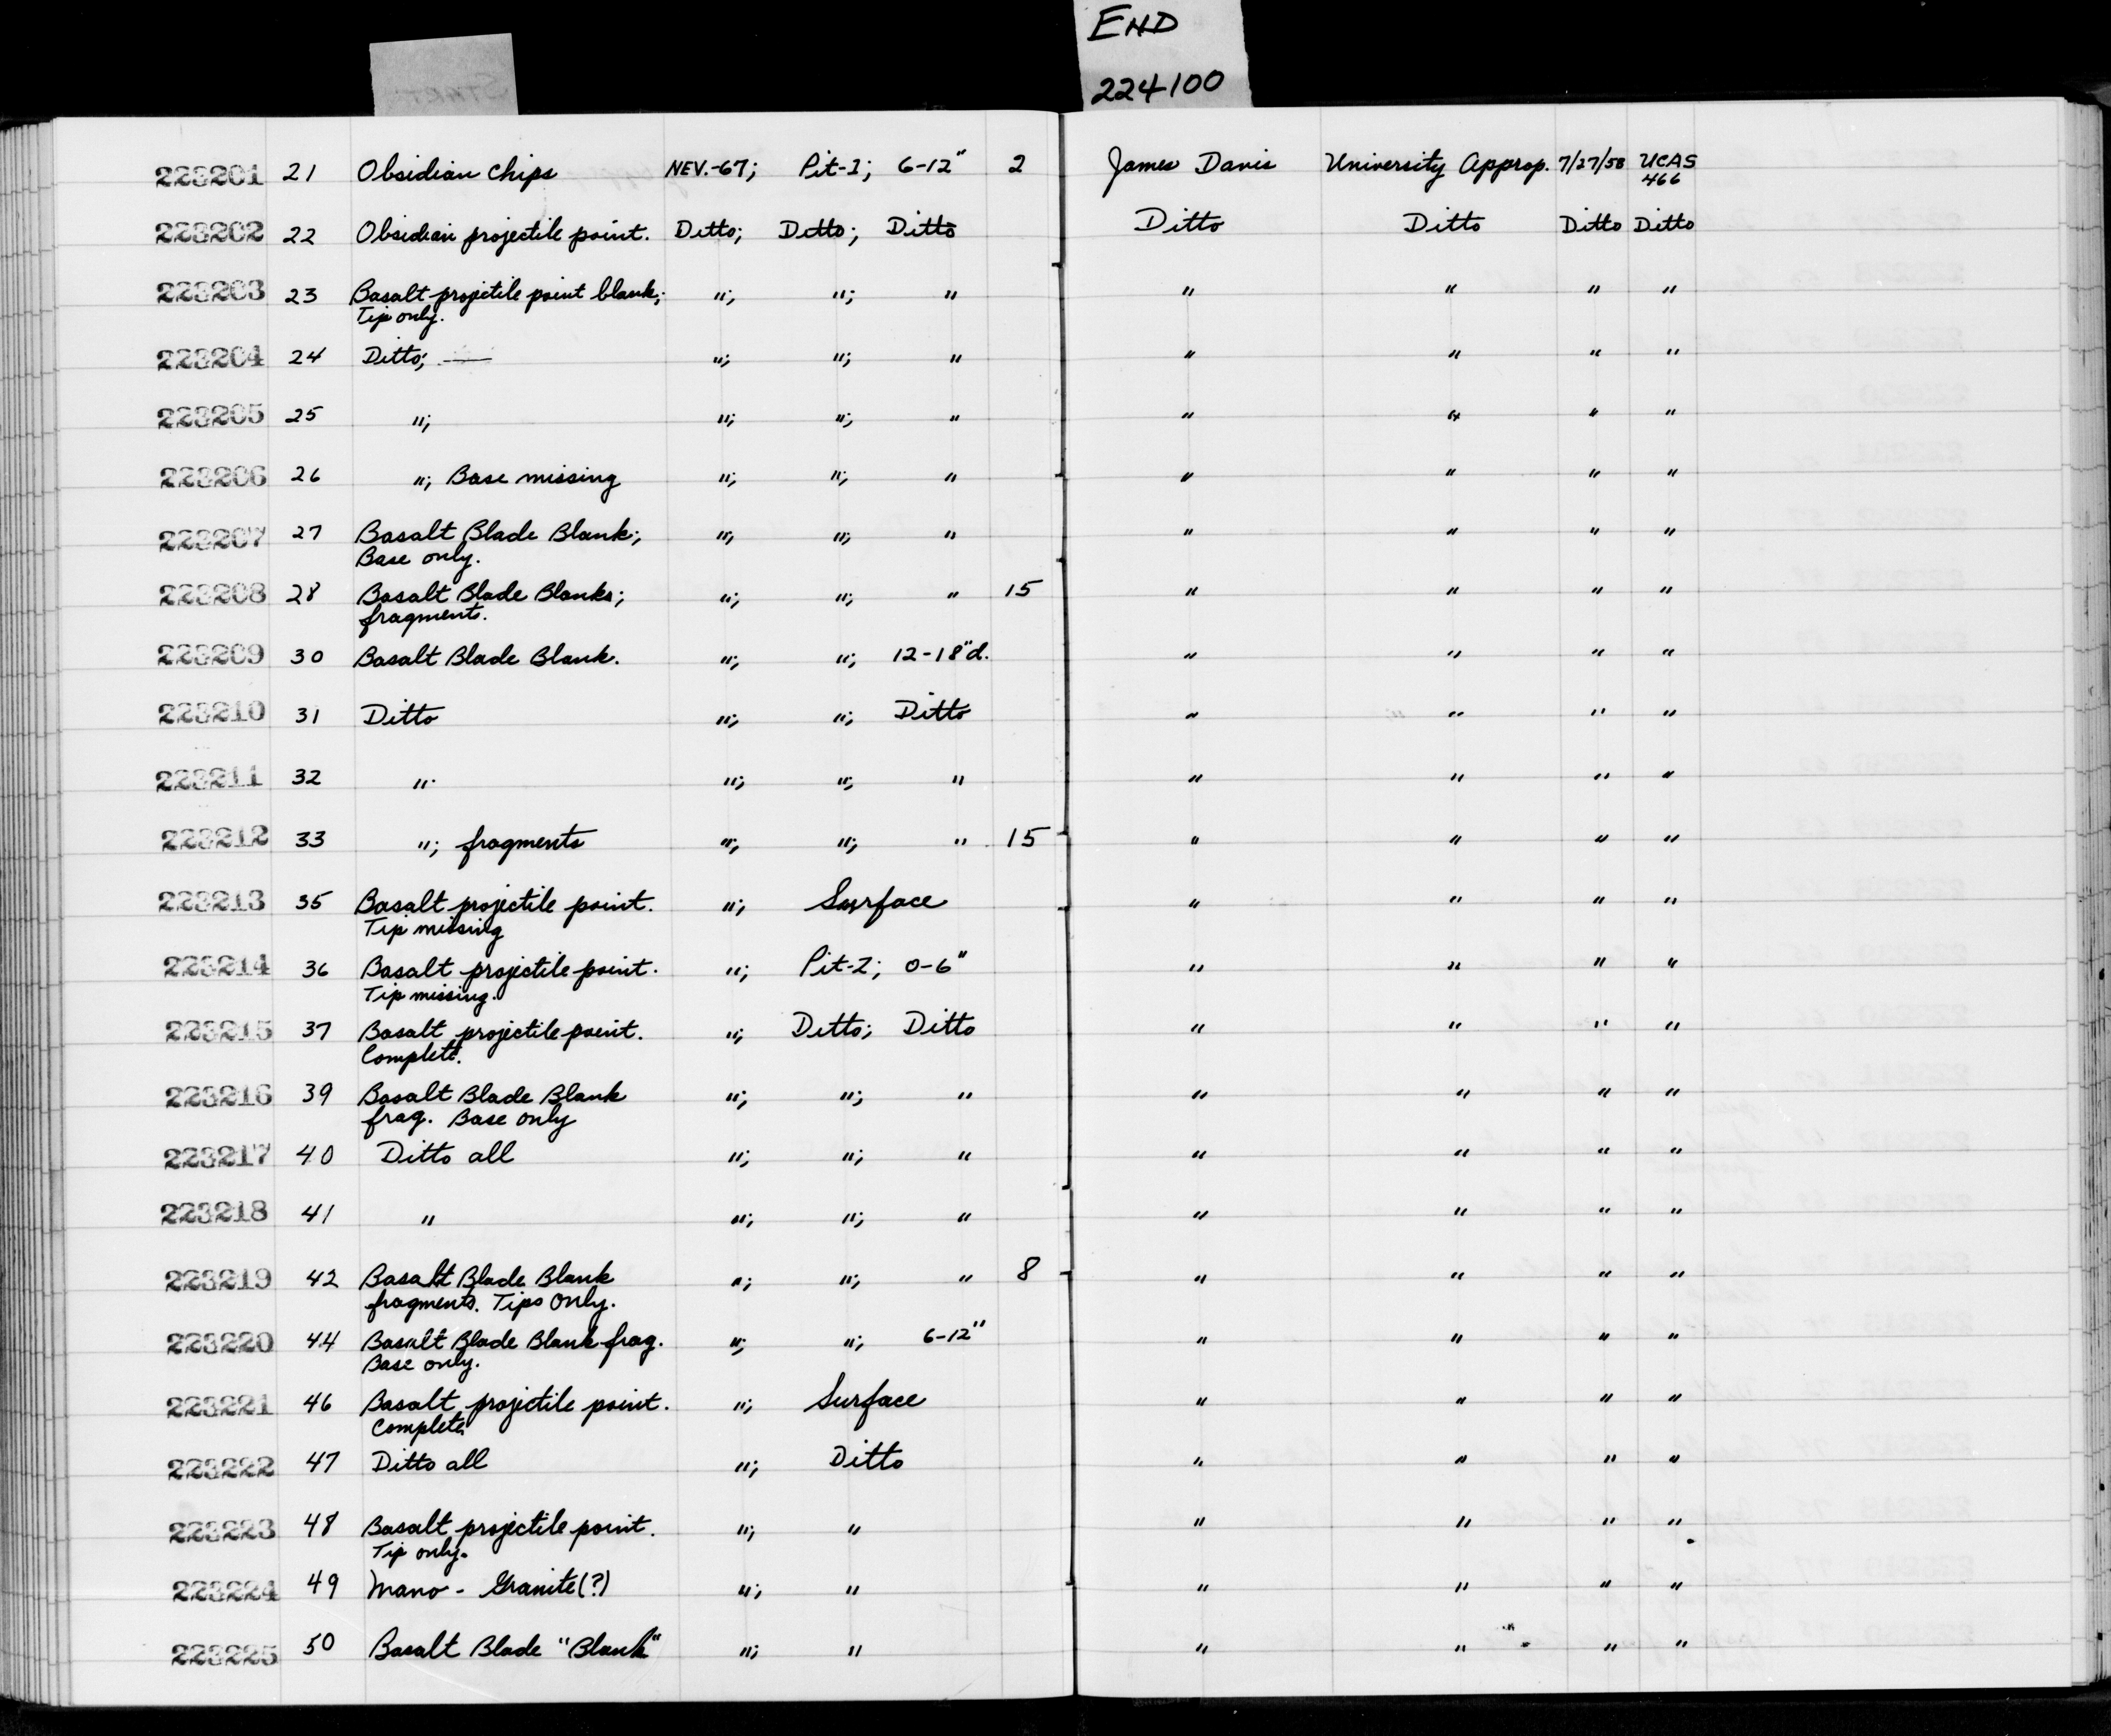 END
224100
START
223201 21 Obsidian Chips NEV.-67; Pit-1; 6-12" 2 James Davis University Approp. 7/27/58 UCAS
466
223202 22 Obsidian projectile point. Ditto; Ditto; Ditto Ditto Ditto Ditto Ditto
223203 23 Basalt projectile point blank; "; "; " " " " "
Tip only.
223204 24 Ditto; — "; "; " " " " "
223205 25 "; "; "; " " " " "
223206 26 "; Base missing "; "; " " " " "
223207 27 Basalt Blade Blank; "; "; " " " " "
Base only.
223208 28 Basalt Blade Blanks; "; "; " 15 " " " "
fragments.
223209 30 Basalt Blade Blank. "; "; 12-18"d. " " " "
223210 31 Ditto "; "; Ditto " " " "
223211 32 " "; "; " " " " "
223212 33 "; fragments "; "; " 15 " " " "
223213 35 Basalt projectile point. "; Surface " " " "
Tip missing
223214 36 Basalt projectile point. "; Pit-2; 0-6" " " " "
Tip missing.
223215 37 Basalt projectile point. "; Ditto; Ditto " " " "
Complete.
223216 39 Basalt Blade Blank "; "; " " " " "
frag. Base only
223217 40 Ditto all "; "; " " " " "
223218 41 " "; "; " " " " "
223219 42 Basalt Blade Blank "; "; " 8 " " " "
fragments. Tips Only.
223220 44 Basalt Blade Blank frag. "; "; 6-12" " " " "
Base only.
223221 46 Basalt projectile point. "; Surface " " " "
Complete
223222 47 Ditto all "; Ditto " " " "
223223 48 Basalt projectile point. "; " " " " "
Tip only.
223224 49 Mano - Granite(?) "; " " " " "
223225 50 Basalt Blade "Blank" "; " " " " "